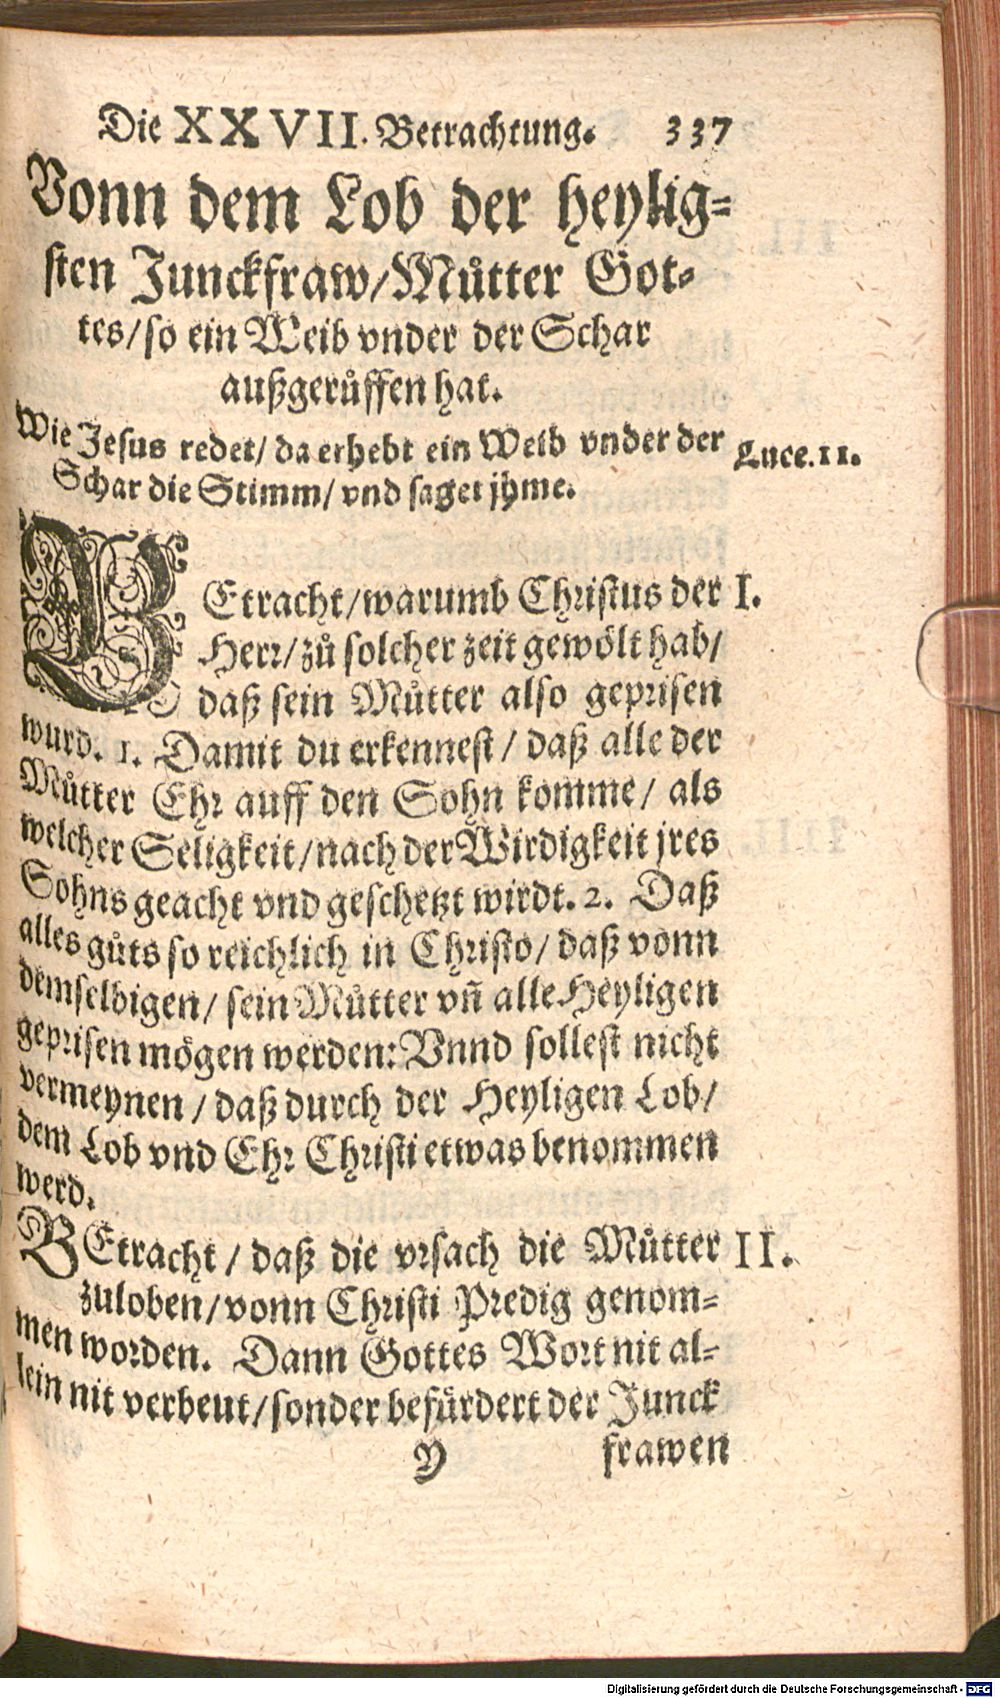 Die XXVII. Betrachtung. 337
Vonn dem Lob der heylig=
sten Junckfraw/Můtter Got=
tes/so ein Weib vnder der Schar
außgerůffen hat.
Wie Jesus redet/ da erhebt ein Weib vnder der
Schar die Stimm/ vnd saget jhme.
Luce.11.
BEtracht/warumb Christus der
Herr/zů solcher zeit gewölt hab/
daß sein Můtter also geprisen
wurd. 1. Damit du erkennest/ daß alle der
Můtter Ehr auff den Sohn komme/ als
welcher Seligkeit/nach der Wirdigkeit jres
Sohns geacht vnd geschetzt wirdt. 2. Daß
alles gůts so reichlich in Christo/ daß vonn
demselbigen/ sein Můtter vñ alle Heyligen
geprisen mögen werden: Vnnd sollest nicht
vermeynen/ daß durch der Heyligen Lob/
dem Lob vnd Ehr Christi etwas benommen
werd.
I.
BEtracht/ daß die vrsach die Můtter
zuloben/vonn Christi Predig genom=
men worden. Dann Gottes Wort nit al=
lein nit verbeut/sonder befürdert der Junck
II.
Y frawen
Digitalisierung gefördert durch die Deutsche Forschungsgemeinschaft - DFG